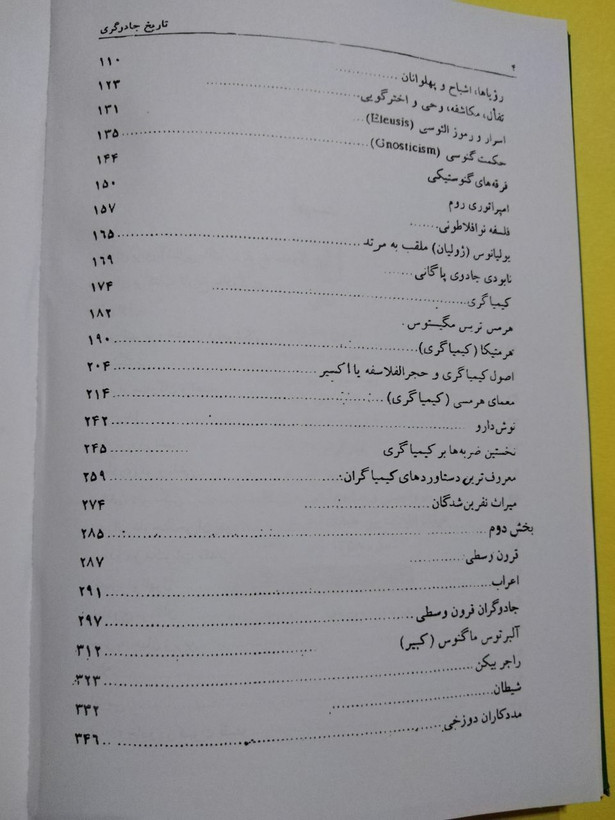 ۴ تاریخ جادوگری
رؤیاها، اشباح و پهلوانان ............ ۱۱۰
تفأل، مکاشفه، وحی و اخترگویی ............ ۱۲۳
اسرار و رموز الئوسی (Eleusis) ... ۱۳۱
حکمت گنوسی (Gnosticism) ............ ۱۳۵
فرقه‌های گنوستیکی ۱۴۴
امپراتوری روم ۱۵۰
فلسفه نوافلاطونی ....... ۱۵۷
یولیانوس (ژولیان) ملقب به مرتد ............ ۱۶۵
نابودی جادوی پاگانی ...... ۱۶۹
کیمیاگری ............ ۱۷۴
هرمس تریس مگیستوس . ۱۸۲
هرمتیکا (کیمیاگری) ............ ۱۹۰
اصول کیمیاگری و حجرالفلاسفه یا اکسیر ............ ۲۰۴
معمای هرمسی (کیمیاگری) ............ ۲۱۴
نوش‌دارو ............ ۲۴۲
نخستین ضربه‌ها بر کیمیاگری ............ ۲۴۵
معروف‌ترین دستاوردهای کیمیاگران ............ ۲۵۹
میراث نفرین‌شدگان ............ ۲۷۴
بخش دوم ............ ۲۸۵
قرون وسطی ............ ۲۸۷
اعراب ............ ۲۹۱
جادوگران قرون وسطی ............ ۲۹۷
آلبرتوس ماگنوس (کبیر) ............ ۳۱۲
راجر بیکن ............ ۳۲۳
شیطان ............ ۳۳۲
مددکاران دوزخی ............ ۳۴۶